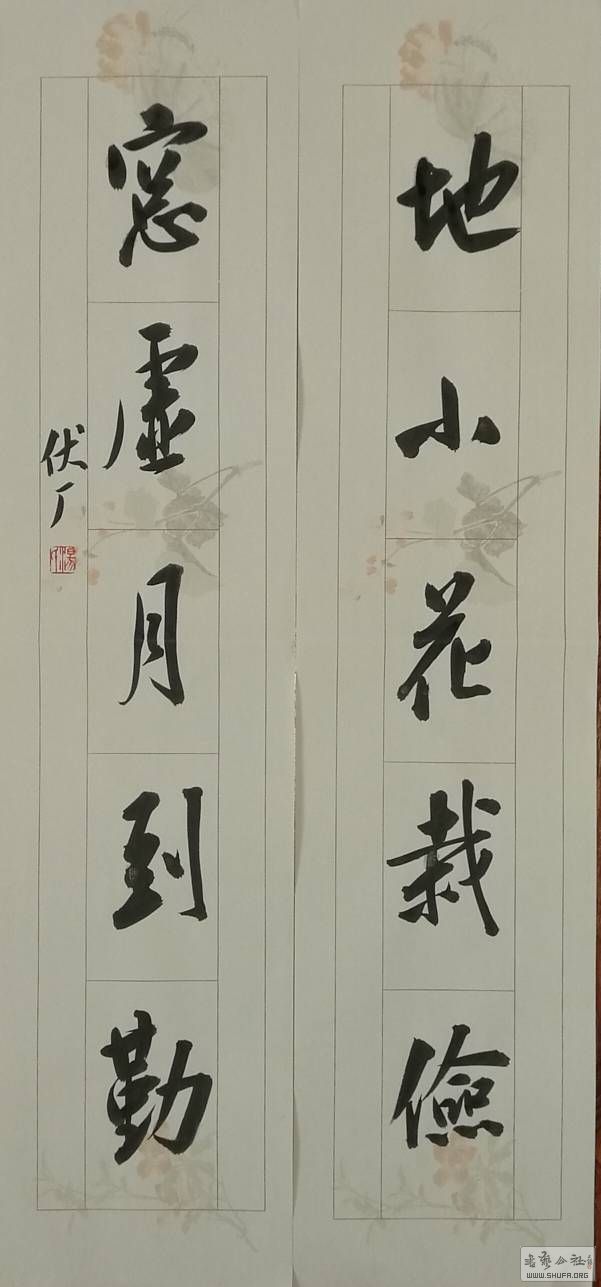 地小花栽儉
窓虛月到勤
伏丁
WWW.SHUFA.ORG